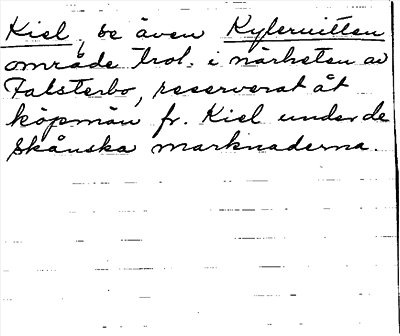 Kiel, se även Kylervitten
område trol. i närheten av
Falsterbo, reserverat åt
köpmän fr. Kiel under de
skånska marknaderna.